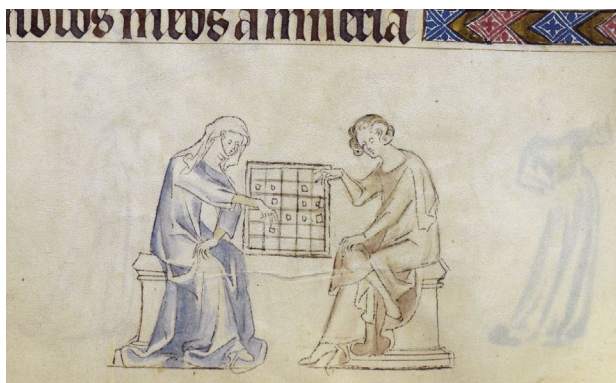 notos meos a miseria